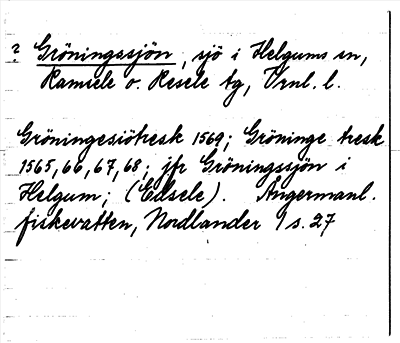 ? Gröningssjön, sjö i Helgums sn,
Ramsele o. Resele tg, Vrnl. l.
Gröningesiötresk 1569; Gröninge tresk
1565, 66, 67, 68; jfr Gröningssjön i
Helgum; (Edsele). Ångermanl.
fiskevatten, Nordlander 1 s. 27